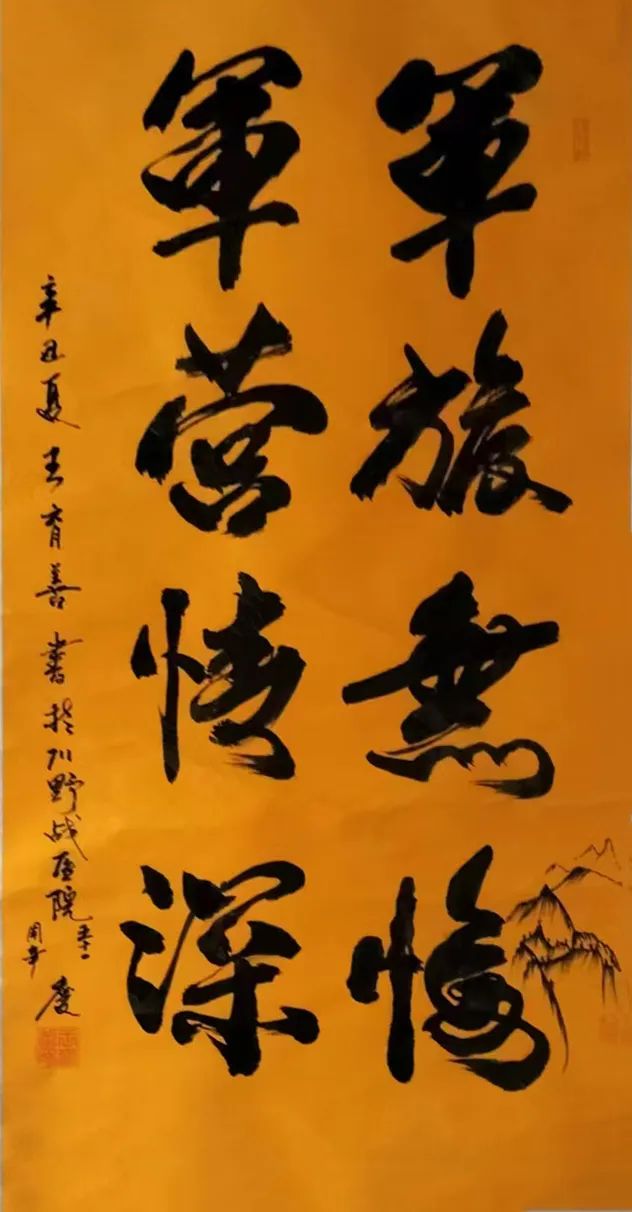 軍旅無悔
軍营情深
辛丑夏王育善書於川野战医院
五十一周年
慶